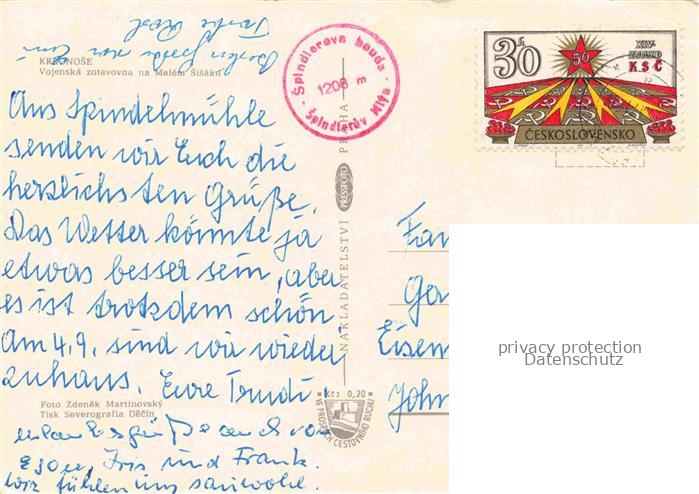 KRKONOŠE
Vojenská zotavovna na Malém Šišáku
Špindlerova bouda
1208 m
Špindlerův Mlýn
30h
50
XIV.
SJEZD
KSČ
ČESKOSLOVENSKO
Aus Spindelmühle
senden wir Euch die
herzlichsten Grüße.
Das Wetter könnte ja
etwas besser sein, aber
es ist trotzdem schön
Am 4.9. sind wir wieder
zuhaus. Eure Trudi
Foto Zdeněk Martinovský
Tisk Severografia Děčín
NAKLADATELSTVÍ
PRESSFOTO
PRAHA
Kčs 0,20
VE PROSPĚCH CESTOVNÍHO RUCHU
Fam
Ga
Eisen
John
Urlaubsgrüße auch von
Egon, Iris und Frank.
Wir fühlen uns sauwohl.
privacy protection
Datenschutz